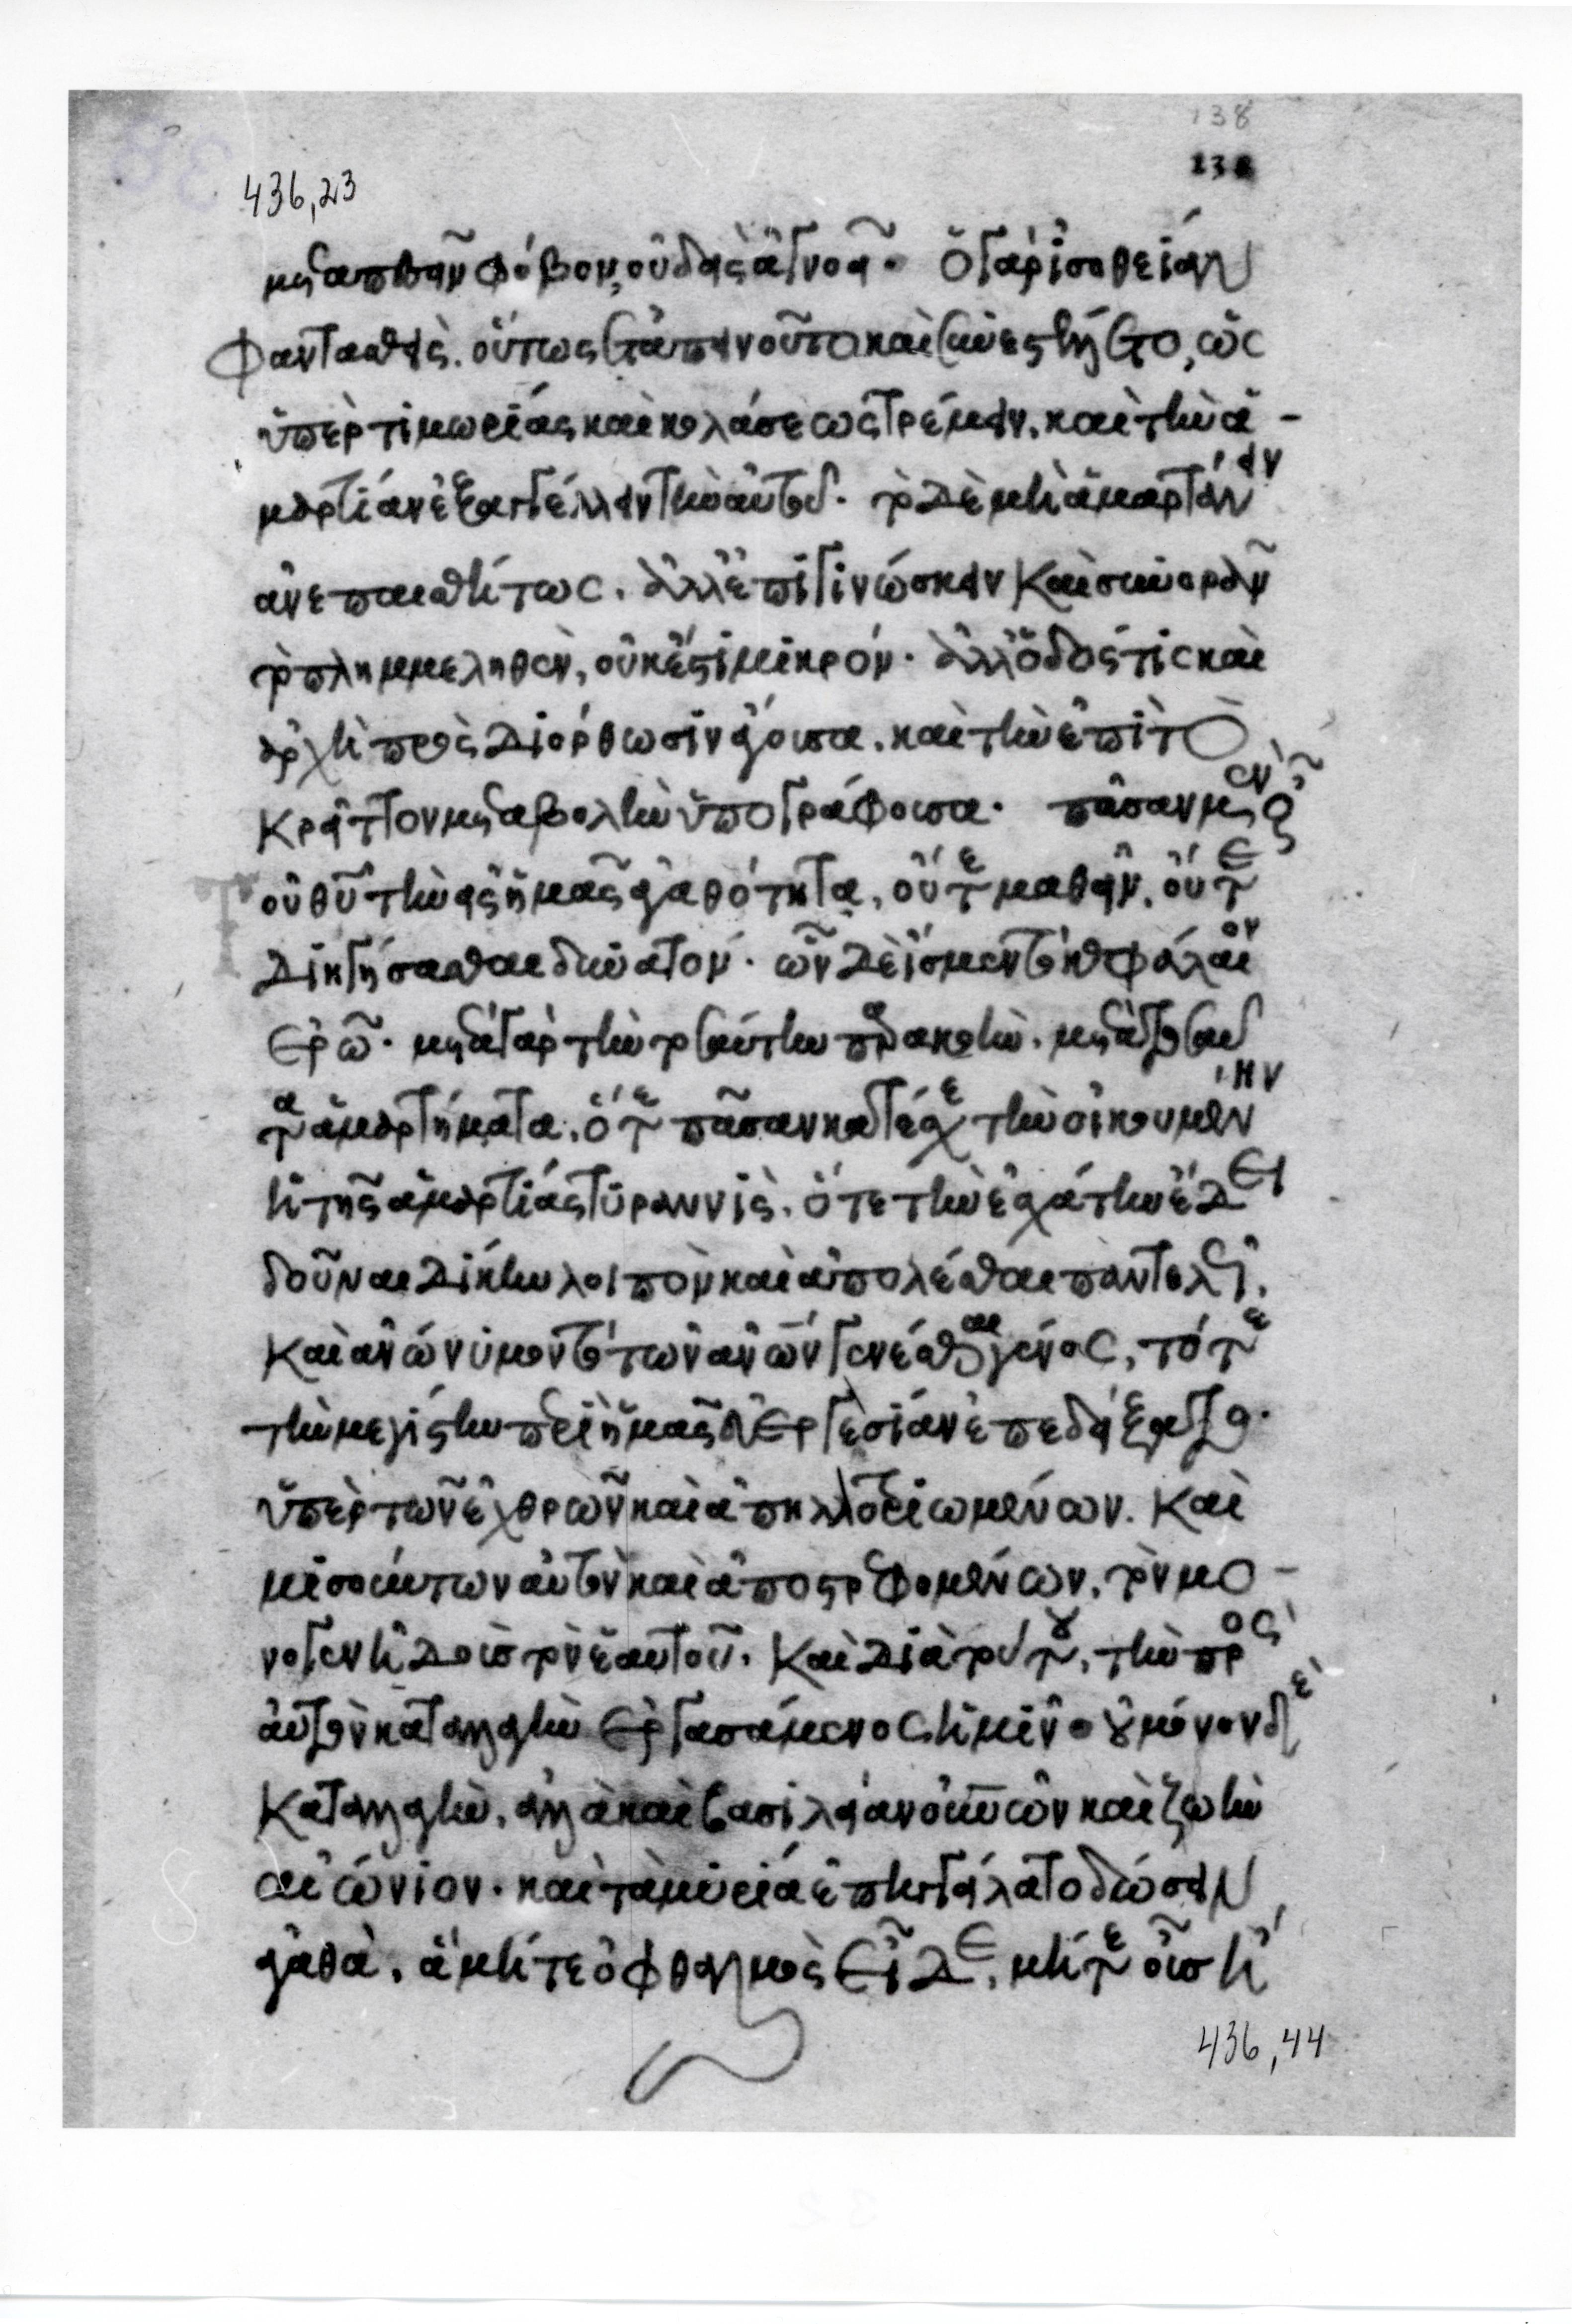 138
138
436,23
φόβον, οὐδεὶς ἀγνοεῖ. ὁ γὰρ ἰσοθεΐαν
φαντασθεὶς, οὕτως ἐταπεινοῦτο καὶ συνεστέλλετο, ὡς
ὑπὲρ τιμωρίας καὶ κολάσεως τρέμειν, καὶ τὴν ἁ-
μαρτίαν ἐξαγγέλλειν τὴν αὐτοῦ. τὸ δὲ μὴ ἁμαρτάνειν
ἀνεπαισθήτως, ἀλλ' ἐπιγινώσκειν καὶ συνορᾶν
τὸ πλημμεληθὲν, οὐκ ἔστι μικρόν. ἀλλ' ὁδός τις καὶ
ἀρχὴ πρὸς διόρθωσιν ἄγουσα, καὶ τὴν ἐπὶ τὸ
κρεῖττον μεταβολὴν ὑπογράφουσα. πᾶσαν μὲν οὖν
τοῦ θῦ τὴν εἰς ἡμᾶς ἀγαθότητα, οὔτε μαθεῖν, οὔτε
διηγήσασθαι δυνατόν. ὧν δὲ ἴσμεν τὸ κεφάλαιον
ἐρῶ. μετὰ γὰρ τὴν τοσαύτην παρακοὴν, μετὰ τοσαῦ
τα ἁμαρτήματα, ὅτε πᾶσαν κατεῖχε τὴν οἰκουμένην
ἡ τῆς ἁμαρτίας τυραννὶς, ὅτε τὴν ἐσχάτην ἔδει
δοῦναι δίκην λοιπὸν καὶ ἀπολέσθαι παντελῶς,
καὶ ἀνώνυμον τὸ τῶν ἀνῶν γενέσθαι γένος, τότε
τὴν μεγίστην περὶ ἡμᾶς εὐεργεσίαν ἐπεδείξατο.
ὑπὲρ τῶν ἐχθρῶν καὶ ἀπηλλοτριωμένων. καὶ
μισούντων αὐτὸν καὶ ἀποστρεφομένων, τὸν μο-
νογενῆ δοὺς τὸν ἑαυτοῦ. καὶ διὰ τούτου, τὴν πρὸς
αὐτὸν καταλλαγὴν ἐργασάμενος ἡμῖν. οὐ μόνον δὲ
καταλλαγὴν, ἀλλὰ καὶ βασιλείαν οὐνῶν καὶ ζωὴν
αἰώνιον. καὶ τὰ μυρία ἐπηγγείλατο δώσειν
ἀγαθὰ, ἃ μήτε ὀφθαλμὸς εἶδε, μήτε οὖς ἤ
436,44